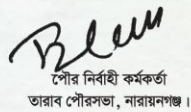 পৌর নির্বাহী কর্মকর্তা
তারাব পৌরসভা, নারায়নগঞ্জ।